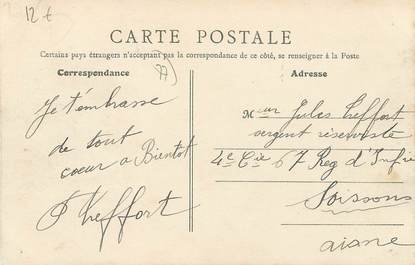 12 €
CARTE POSTALE
Certains pays étrangers n'acceptant pas la correspondance de ce côté, se renseigner à la Poste
Correspondance
77
Adresse
Je t'embrasse
de tout
coeur a Bientot
Meffort
Meur Jules Meffort
sergent réserviste
4e Cie 67 Reg d'Infie
Soissons
aisne